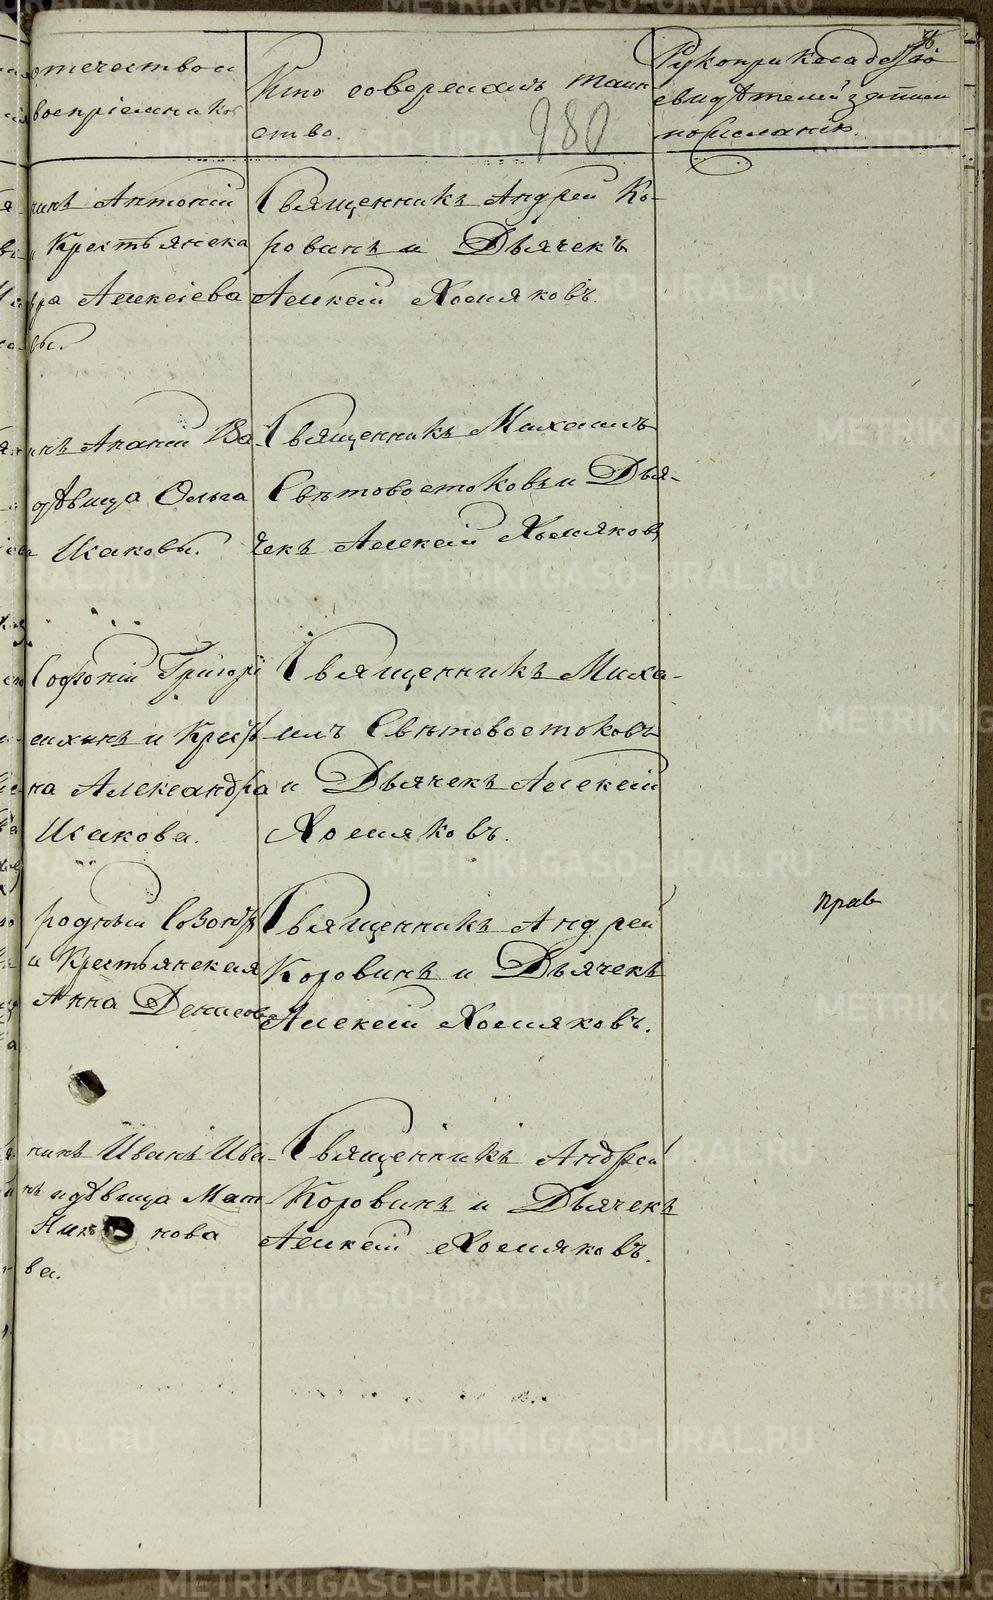 отечество и
воспріемников
Кто совершалъ таин
ство.
980
Рукоприкладство
свидѣтелей записи
по желанію.
нинъ Антоній
Крестьянска
ра Алексіева
вы.
Священникъ Андрей Ко-
ровинъ и Дьячекъ
Алексій Хомяковъ.
нъ Ананій Ва
дѣвица Ольга
Исаковы.
Священникъ Михаилъ
Свѣтовостоковъ и Дья-
чекъ Алексій Хомяковъ
Софоній Григорі
и Крест
на Александра
Исакова.
Священникъ Миха-
илъ Свѣтовостоковъ
и Дьячекъ Алексій
Хомяковъ.
родный Созонтъ
и Крестьянская
Анна Денисова
Священникъ Андрей
Коровинъ и Дьячекъ
Алексій Хомяковъ.
прав
нинъ Иванъ Ива-
нъ и дѣвица Мат
нова
ва.
Священникъ Андрей
Коровинъ и Дьячекъ
Алексій Хомяковъ.
METRIKI.GASO-URAL.RU